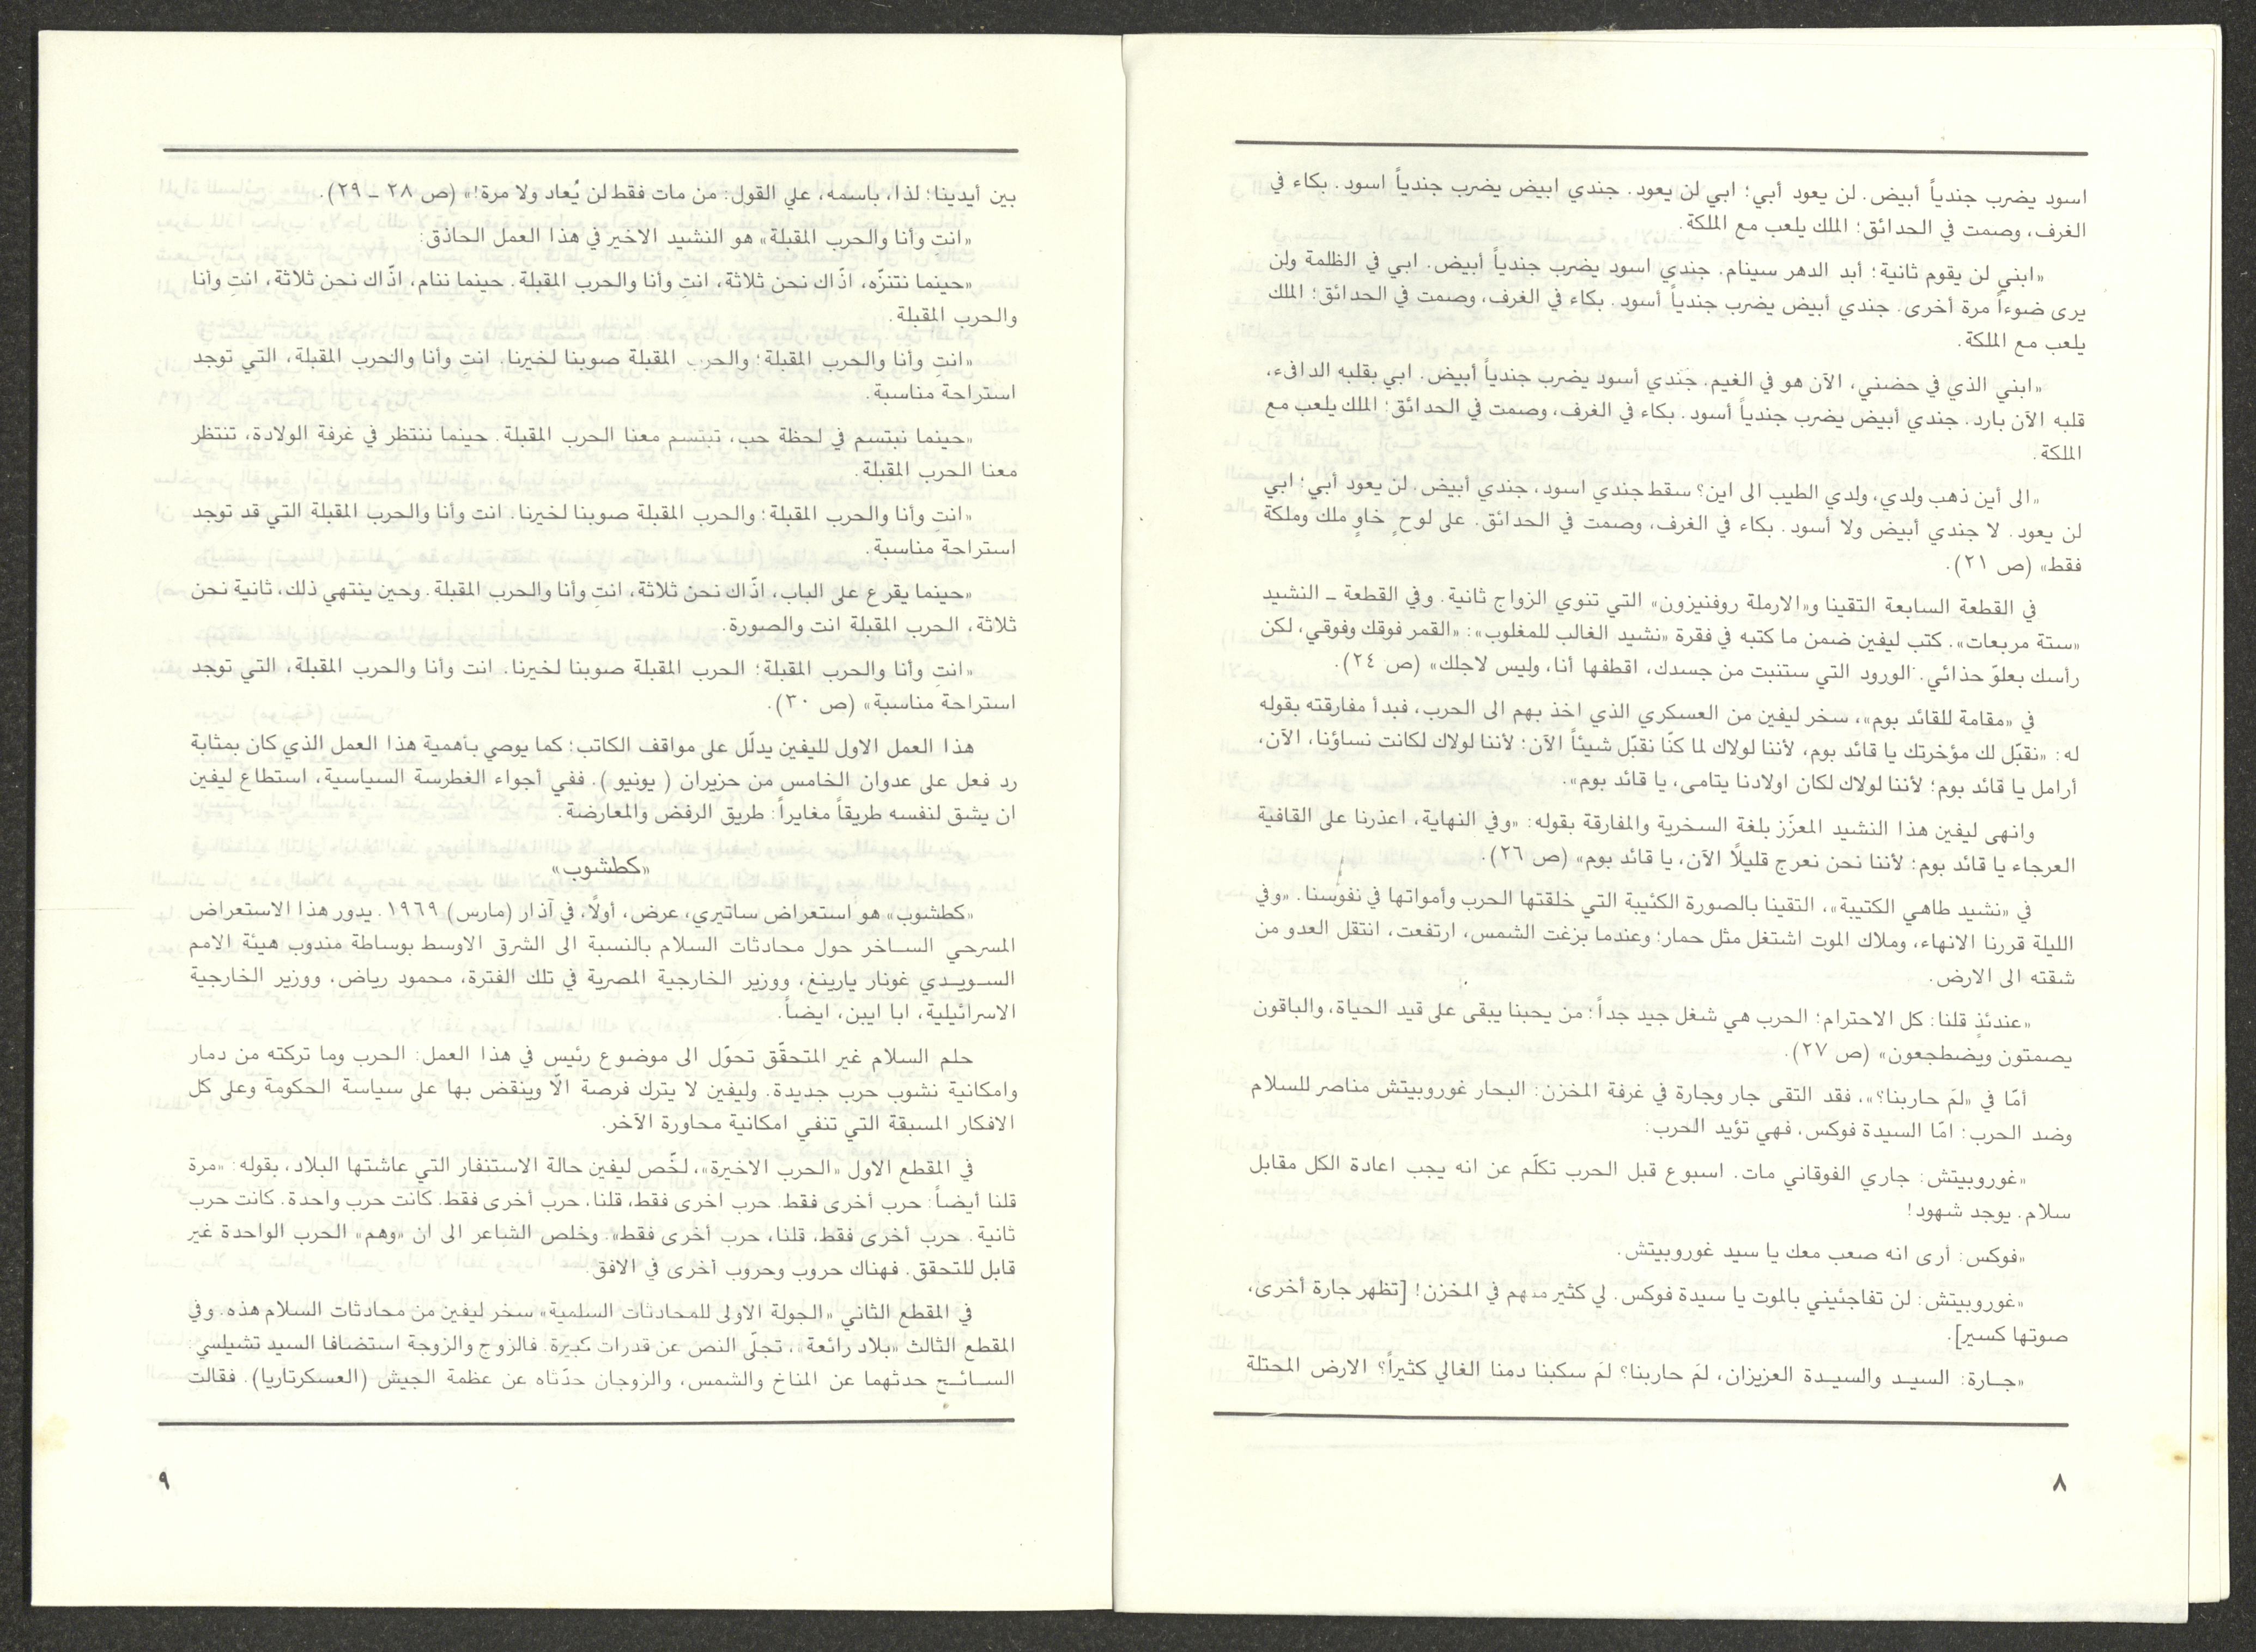 اسود يضرب جندياً أبيض. لن يعود أبي؛ ابي لن يعود. جندي ابيض يضرب جندياً اسود. بكاء في
الغرف، وصمت في الحدائق؛ الملك يلعب مع الملكة.
«ابني لن يقوم ثانية؛ أبد الدهر سينام. جندي اسود يضرب جندياً أبيض. ابي في الظلمة ولن
يرى ضوءاً مرة أخرى. جندي أبيض يضرب جندياً أسود. بكاء في الغرف، وصمت في الحدائق؛ الملك
يلعب مع الملكة.
«ابني الذي في حضني، الآن هو في الغيم. جندي أسود يضرب جندياً أبيض. ابي بقلبه الدافىء،
قلبه الآن بارد. جندي أبيض يضرب جندياً أسود. بكاء في الغرف، وصمت في الحدائق؛ الملك يلعب مع
الملكة.
«الى أين ذهب ولدي، ولدي الطيب الى اين؟ سقط جندي اسود، جندي أبيض. لن يعود أبي؛ ابي
لن يعود. لا جندي أبيض ولا أسود. بكاء في الغرف، وصمت في الحدائق. على لوحٍ خاوٍ ملك وملكة
فقط» (ص ٢١).
في القطعة السابعة التقينا و«الارملة روفنيزون» التي تنوي الزواج ثانية. وفي القطعة ــ النشيد
«ستة مربعات». كتب ليفين ضمن ما كتبه في فقرة «نشيد الغالب للمغلوب»: «القمر فوقك وفوقي، لكن
رأسك بعلوّ حذائي. الورود التي ستنبت من جسدك، اقطفها أنا، وليس لاجلك» (ص ٢٤).
في «مقامة للقائد بوم»، سخر ليفين من العسكري الذي اخذ بهم الى الحرب، فبدأ مفارقته بقوله
له: «نقبّل لك مؤخرتك يا قائد بوم، لأننا لولاك لما كنّا نقبّل شيئاً الآن؛ لأننا لولاك لكانت نساؤنا، الآن،
أرامل يا قائد بوم؛ لأننا لولاك لكان اولادنا يتامى، يا قائد بوم».
وانهى ليفين هذا النشيد المعزّز بلغة السخرية والمفارقة بقوله: «وفي النهاية، اعذرنا على القافية
العرجاء يا قائد بوم؛ لأننا نحن نعرج قليلًا الآن، يا قائد بوم» (ص ٢٦).
في «نشيد طاهي الكتيبة»، التقينا بالصورة الكئيبة التي خلقتها الحرب وأمواتها في نفوسنا. «وفي
الليلة قررنا الانهاء، وملاك الموت اشتغل مثل حمار؛ وعندما بزغت الشمس، ارتفعت، انتقل العدو من
شقته الى الارض.
«عندئذٍ قلنا: كل الاحترام؛ الحرب هي شغل جيد جداً؛ من يحبنا يبقى على قيد الحياة، والباقون
يصمتون ويضطجعون» (ص ٢٧).
أمّا في «لمَ حاربنا؟»، فقد التقى جار وجارة في غرفة المخزن: البحار غوروبيتش مناصر للسلام
وضد الحرب؛ امّا السيدة فوكس، فهي تؤيد الحرب:
«غوروبيتش: جاري الفوقاني مات. اسبوع قبل الحرب تكلّم عن انه يجب اعادة الكل مقابل
سلام. يوجد شهود!
«فوكس: أرى انه صعب معك يا سيد غوروبيتش.
«غوروبيتش: لن تفاجئيني بالموت يا سيدة فوكس. لي كثير منهم في المخزن! [تظهر جارة أخرى،
صوتها كسير].
«جـارة: السيـد والسيـدة العزيزان، لمَ حاربنا؟ لمَ سكبنا دمنا الغالي كثيراً؟ الارض المحتلة
٨
بين أيدينا؛ لذا، باسمه، علي القول: من مات فقط لن يُعاد ولا مرة!» (ص ٢٨ ــ ٢٩).
«انتِ وأنا والحرب المقبلة» هو النشيد الاخير في هذا العمل الحاذق:
«حينما نتنزّه، اذّاك نحن ثلاثة، انتِ وأنا والحرب المقبلة. حينما ننام، اذّاك نحن ثلاثة، انتِ وأنا
والحرب المقبلة.
«انتِ وأنا والحرب المقبلة؛ والحرب المقبلة صوبنا لخيرنا. انتِ وأنا والحرب المقبلة، التي توجد
استراحة مناسبة.
«حينما نبتسم في لحظة حب، تبتسم معنا الحرب المقبلة. حينما ننتظر في غرفة الولادة، تنتظر
معنا الحرب المقبلة.
«انتِ وأنا والحرب المقبلة؛ والحرب المقبلة صوبنا لخيرنا. انت وأنا والحرب المقبلة التي قد توجد
استراحة مناسبة.
«حينما يقرع على الباب، اذّاك نحن ثلاثة، انتِ وأنا والحرب المقبلة. وحين ينتهي ذلك، ثانية نحن
ثلاثة، الحرب المقبلة انت والصورة.
«انتِ وأنا والحرب المقبلة؛ الحرب المقبلة صوبنا لخيرنا. انت وأنا والحرب المقبلة، التي توجد
استراحة مناسبة» (ص ٣٠).
هذا العمل الاول لليفين يدلّل على مواقف الكاتب؛ كما يوصي بأهمية هذا العمل الذي كان بمثابة
رد فعل على عدوان الخامس من حزيران ( يونيو ). ففي أجواء الغطرسة السياسية، استطاع ليفين
ان يشق لنفسه طريقاً مغايراً: طريق الرفض والمعارضة.
«كطشوب»
«كطشوب» هو استعراض ساتيري، عرض، أولًا، في آذار (مارس) ١٩٦٩. يدور هذا الاستعراض
المسرحي الساخر حول محادثات السلام بالنسبة الى الشرق الاوسط بوساطة مندوب هيئة الامم
السويدي غونار يارينغ، ووزير الخارجية المصرية في تلك الفترة، محمود رياض، ووزير الخارجية
الاسرائيلية، ابا ايبن، ايضاً.
حلم السلام غير المتحقّق تحوّل الى موضوع رئيس في هذا العمل: الحرب وما تركته من دمار
وامكانية نشوب حرب جديدة. وليفين لا يترك فرصة الّا وينقض بها على سياسة الحكومة وعلى كل
الافكار المسبقة التي تنفي امكانية محاورة الآخر.
في المقطع الاول «الحرب الاخيرة»، لخّص ليفين حالة الاستنفار التي عاشتها البلاد، بقوله: «مرة
قلنا أيضاً: حرب أخرى فقط. حرب اخرى فقط، قلنا، حرب أخرى فقط. كانت حرب واحدة. كانت حرب
ثانية. حرب أخرى فقط، قلنا، حرب أخرى فقط». وخلص الشاعر الى ان «وهم» الحرب الواحدة غير
قابل للتحقق. فهناك حروب وحروب أخرى في الافق.
في المقطع الثاني «الجولة الاولى للمحادثات السلمية» سخر ليفين من محادثات السلام هذه. وفي
المقطع الثالث «بلاد رائعة»، تجلّى النص عن قدرات كبيرة. فالزوج والزوجة استضافا السيد تشيلسي:
السـائـح حدثهما عن المناخ والشمس، والزوجان حدّثاه عن عظمة الجيش (العسكرتاريا). فقالت
٩